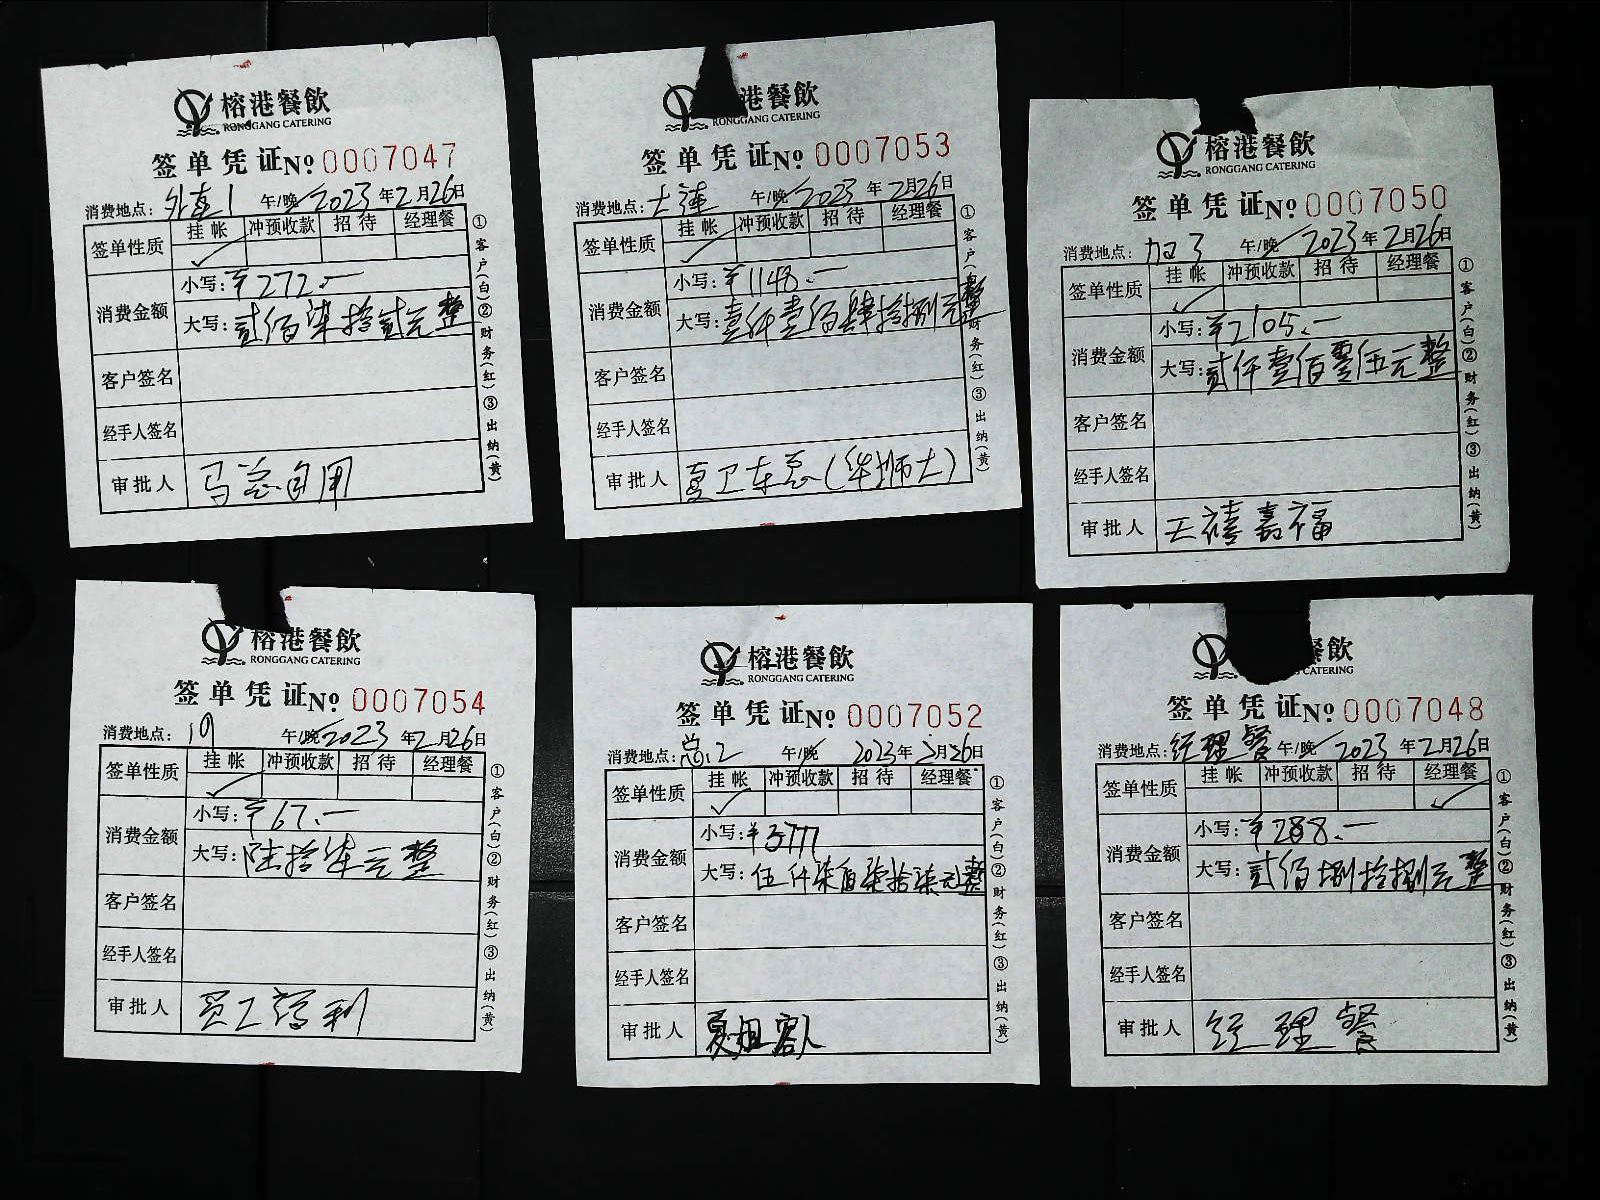 榕港餐飲
RONGGANG CATERING
签单凭证№ 0007047
消费地点: 外直1 午/晚 2023年2月26日
签单性质 挂帐 冲预收款 招待 经理餐
✓
消费金额 小写: ¥272.—
大写: 贰佰柒拾贰元整
客户签名
经手人签名
审批人 马总自用
①客户(白)②财务(红)③出纳(黄)
港餐飲
RONGGANG CATERING
签单凭证№ 0007053
消费地点: 大连 午/晚 2023年2月26日
签单性质 挂帐 冲预收款 招待 经理餐
✓
消费金额 小写: ¥1148.—
大写: 壹仟壹佰肆拾捌元整
客户签名
经手人签名
审批人 夏卫东总
①客户(白)②财务(红)③出纳(黄)
榕港餐飲
RONGGANG CATERING
签单凭证№ 0007050
消费地点: 午/晚 2023年2月26日
签单性质 挂帐 冲预收款 招待 经理餐
✓
消费金额 小写: ¥2105.—
大写: 贰仟壹佰零伍元整
客户签名
经手人签名
审批人 王禧嘉福
①客户(白)②财务(红)③出纳(黄)
榕港餐飲
RONGGANG CATERING
签单凭证№ 0007054
消费地点: 午/晚 2023年2月26日
签单性质 挂帐 冲预收款 招待 经理餐
✓
消费金额 小写: ¥67.—
大写: 陆拾柒元整
客户签名
经手人签名
审批人 员工福利
①客户(白)②财务(红)③出纳(黄)
榕港餐飲
RONGGANG CATERING
签单凭证№ 0007052
消费地点: 午/晚 2023年2月26日
签单性质 挂帐 冲预收款 招待 经理餐
✓
消费金额 小写: ¥5777
大写: 伍仟柒佰柒拾柒元整
客户签名
经手人签名
审批人 夏姐客人
①客户(白)②财务(红)③出纳(黄)
餐飲
RONGGANG CATERING
签单凭证№ 0007048
消费地点: 经理餐 午/晚 2023年2月26日
签单性质 挂帐 冲预收款 招待 经理餐
✓
消费金额 小写: ¥288.—
大写: 贰佰捌拾捌元整
客户签名
经手人签名
审批人 经理餐
①客户(白)②财务(红)③出纳(黄)